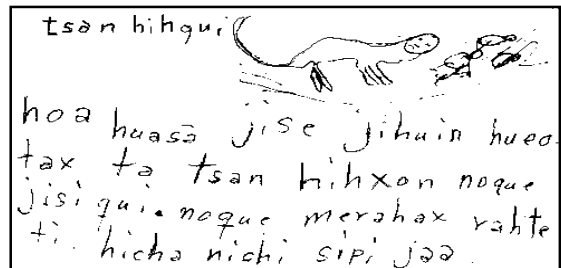 tsan hihqui
hoa huasā jise jihuin hueo
tax ta tsan hihxon noque
jisi qui. noque merahax rahte
ti. hicha nichi sipi jaa.